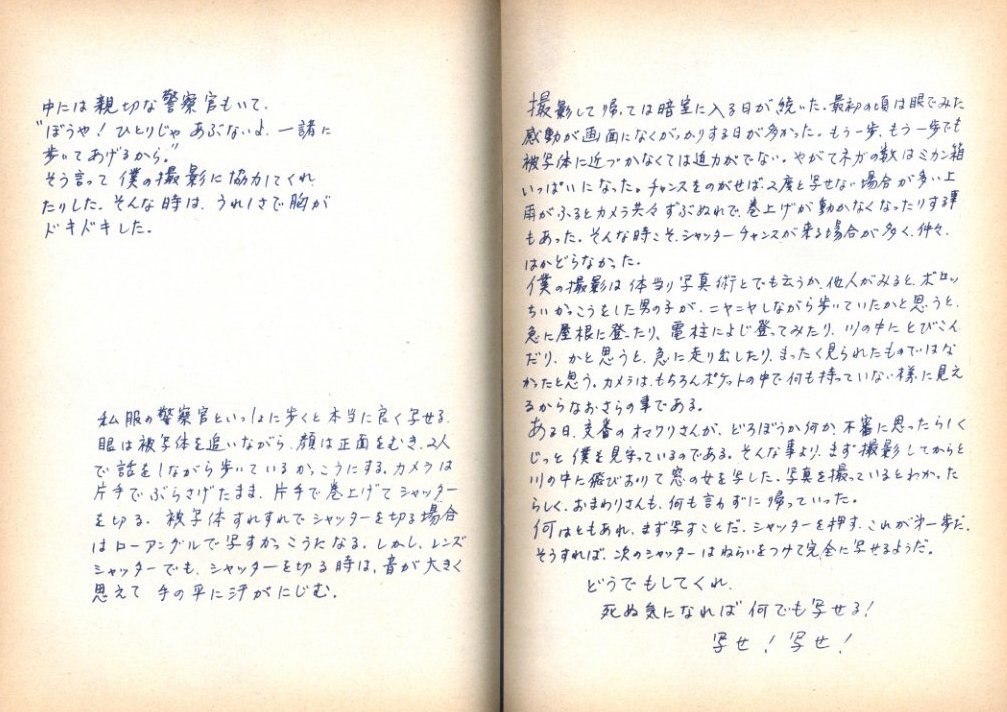 中には親切な警察官もいて、
"ぼうや！ひとりじゃあぶないよ、一諸に
歩いてあげるから。"
そう言って僕の撮影に協力してくれ
たりした。そんな時は、うれしさで胸が
ドキドキした。
私服の警察官といっしょに歩くと本当に良く写せる。
眼は被写体を追いながら、顔は正面をむき、2人
で話をしながら歩いているかっこうにする。カメラは
片手でぶらさげたまま、片手で巻上げてシャッター
を切る。被写体すれすれでシャッターを切る場合
はローアングルで写すかっこうになる。しかし、レンズ
シャッターでも、シャッターを切る時は、音が大きく
思えて手の平に汗がにじむ。
撮影して帰っては暗室に入る日が続いた。最初の頃は眼でみた
感動が画面になくがっかりする日が多かった。もう一歩、もう一歩でも
被写体に近づかなくては迫力がでない。やがてネガの数はミカン箱
いっぱいになった。チャンスをのがせば、2度と写せない場合が多い上
雨がふるとカメラ共々ずぶぬれで、巻上げが動かなくなったりする事
もあった。そんな時こそ、シャッターチャンスが来る場合が多く、仲々、
はかどらなかった。
僕の撮影は体当り写真術とでも云うか、他人がみると、ボロッ
ちいかっこうをした男の子が、ニヤニヤしながら歩いていたかと思うと、
急に屋根に登ったり、電柱によじ登ってみたり、川の中にとびこん
だり、かと思うと、急に走り出したり、まったく見られたものではな
かったと思う。カメラは、もちろんポケットの中で何も持っていない様に見え
るからなおさらの事である。
ある日、交番のオマワリさんが、どろぼうか何か、不審に思ったらしく
じっと僕を見守っているのである。そんな事より、まず撮影してからと
川の中に飛びおりて窓の女を写した。写真を撮っているとわかった
らしく、おまわりさんも、何も言わずに帰っていった。
何はともあれ、まず写すことだ。シャッターを押す、これが第一歩だ。
そうすれば、次のシャッターはねらいをつけて完全に写せるようだ。
どうでもしてくれ、
死ぬ気になれば何でも写せる！
写せ！写せ！